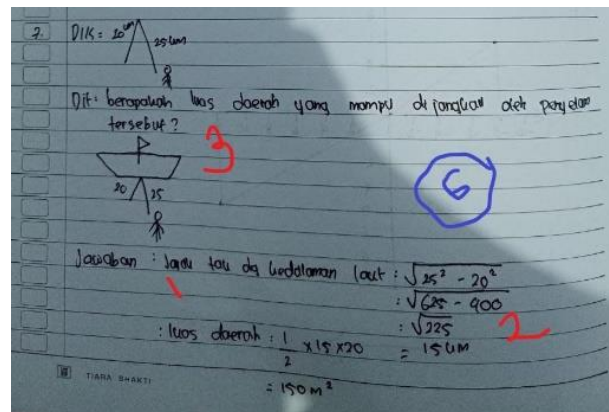 7. Dik = 20 cm 25 cm
Dit : berapakah luas daerah yang mampu di jangkau oleh penyelam
tersebut ?
P
3
20 25
6
Jawaban : Jarak tali dg kedalaman laut : √25² - 20²
: √625 - 400
1
: √225
2
: luas daerah : 1/2 x 15 x 20 = 15 cm
= 150 m²
TIARA BHAKTI